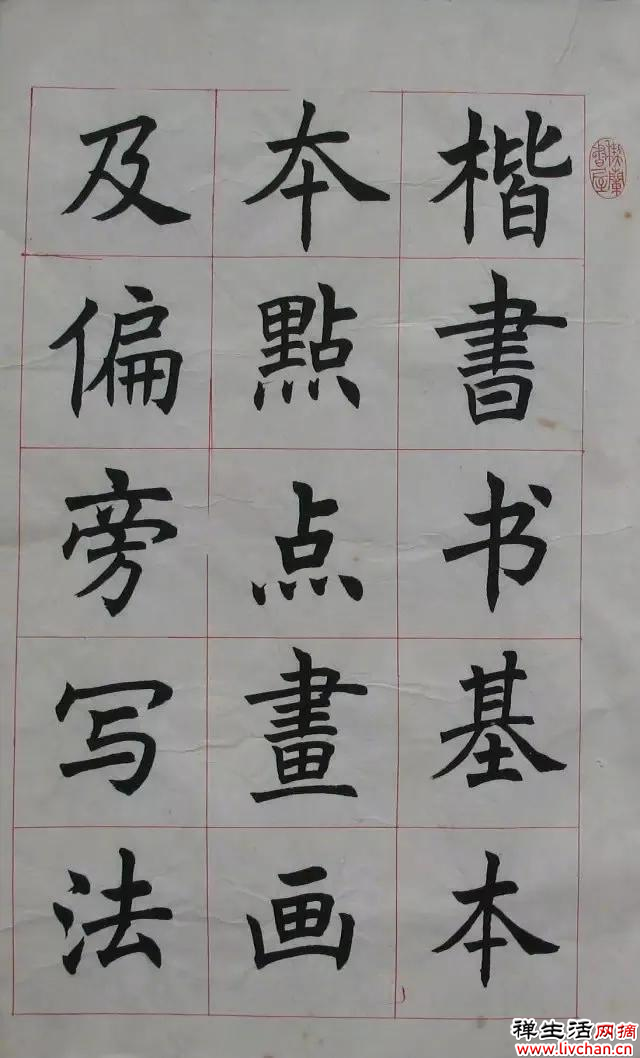 楷書书基本
本點点畫画
及偏旁写法
禅生活网摘
www.livchan.cn